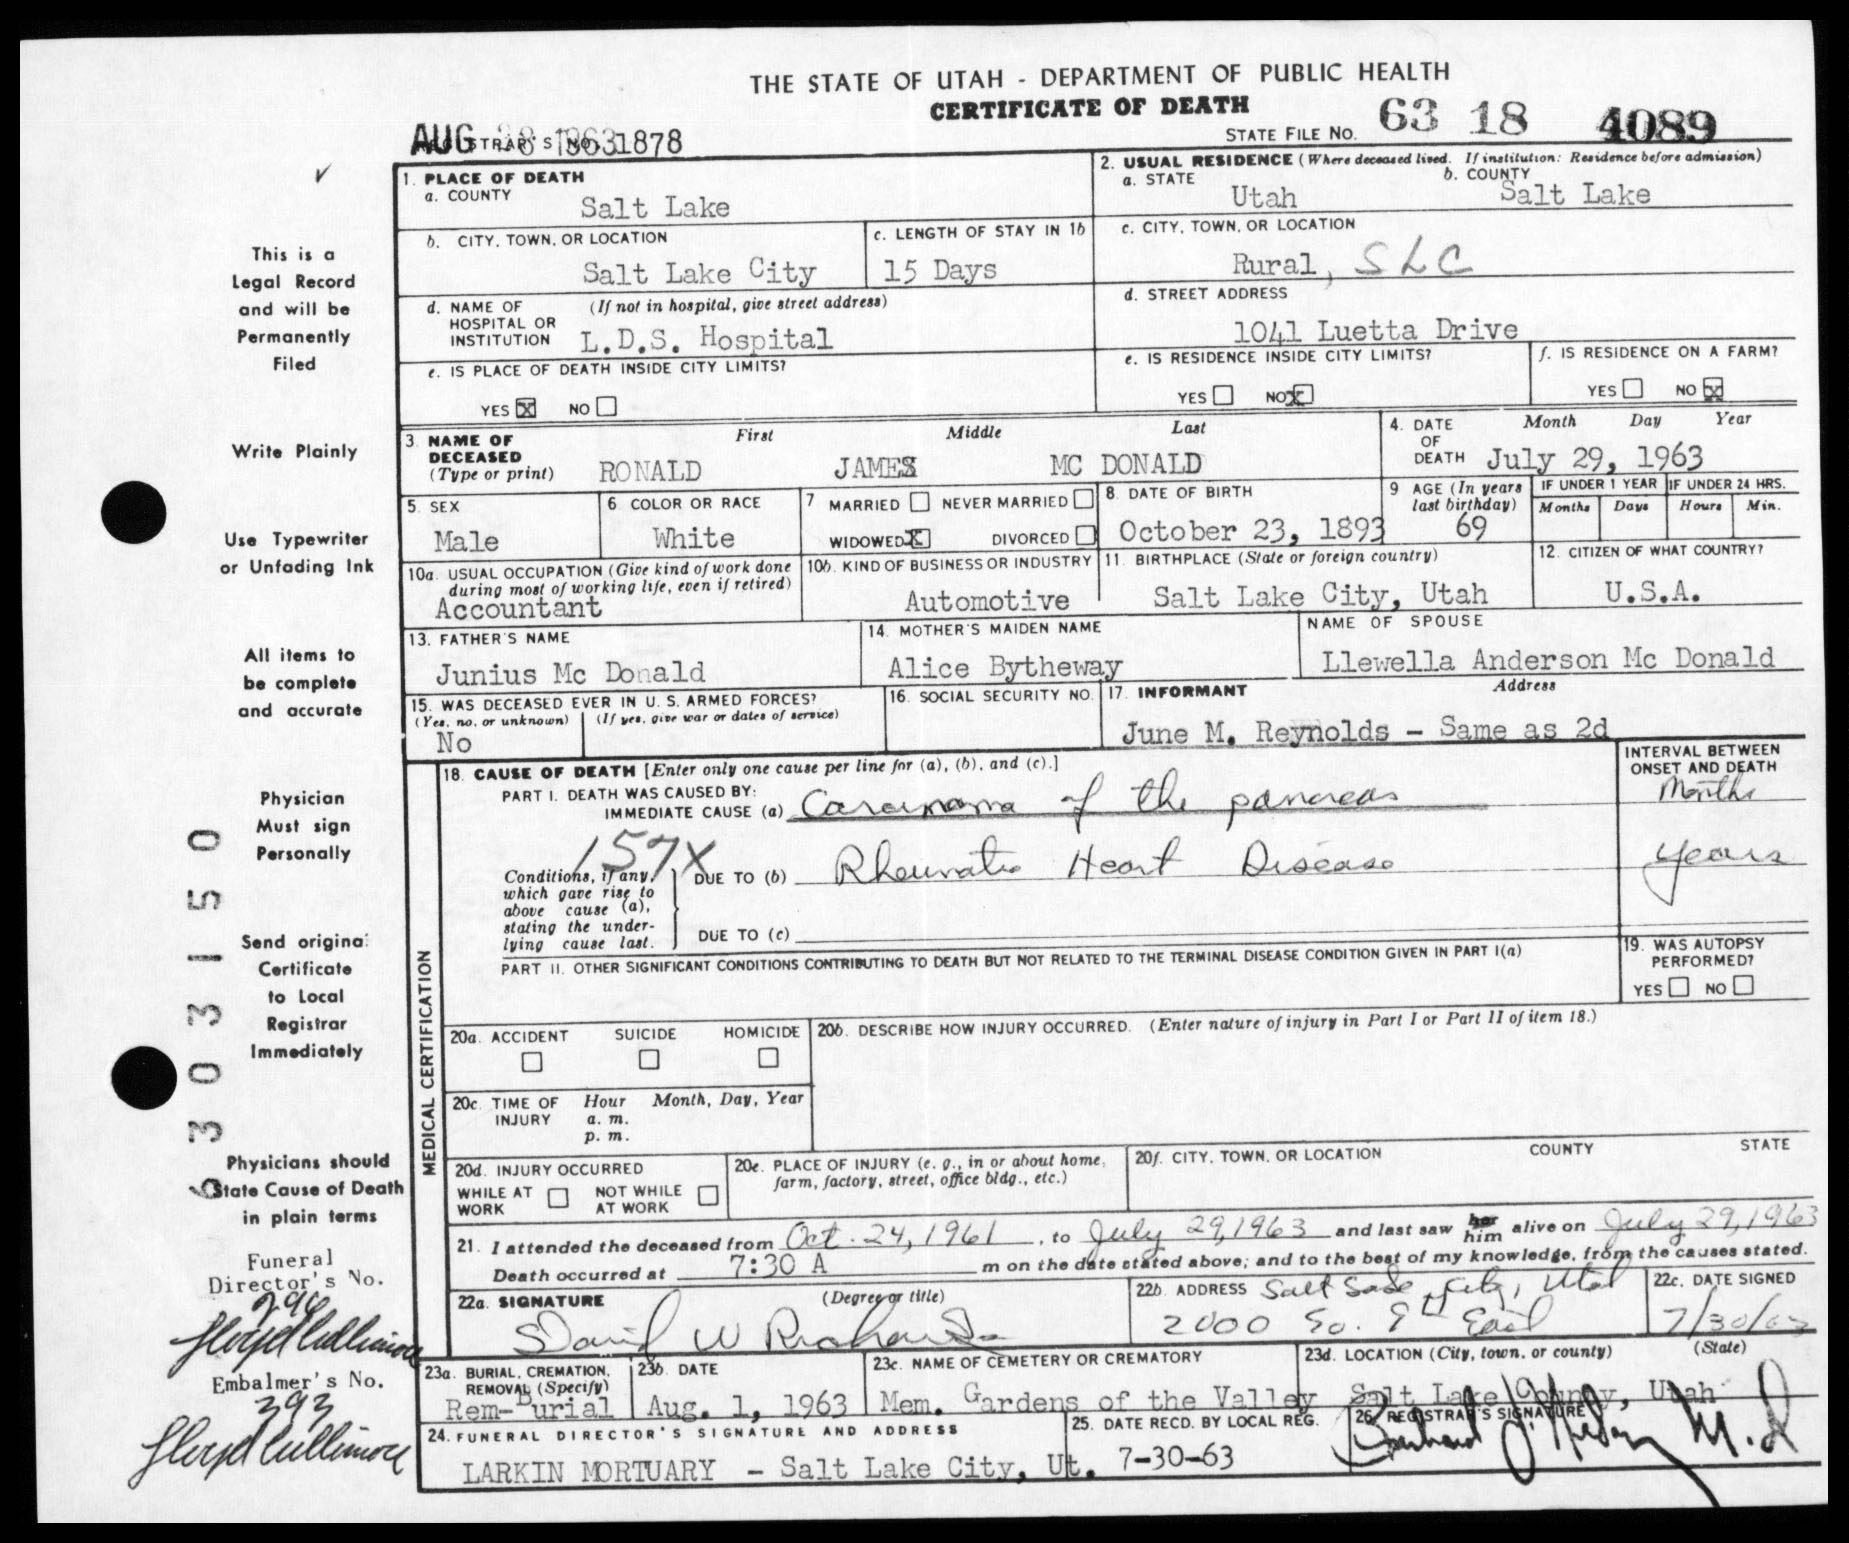 THE STATE OF UTAH - DEPARTMENT OF PUBLIC HEALTH
CERTIFICATE OF DEATH
AUG 28 1963 REGISTRAR'S NO. 1878
STATE FILE NO. 63 18 4089
1. PLACE OF DEATH
a. COUNTY
Salt Lake
2. USUAL RESIDENCE (Where deceased lived. If institution: Residence before admission)
a. STATE b. COUNTY
Utah Salt Lake
b. CITY, TOWN, OR LOCATION
Salt Lake City
c. LENGTH OF STAY IN 1b
15 Days
c. CITY, TOWN, OR LOCATION
Rural, SLC
d. NAME OF HOSPITAL OR INSTITUTION (If not in hospital, give street address)
L.D.S. Hospital
d. STREET ADDRESS
1041 Luetta Drive
e. IS PLACE OF DEATH INSIDE CITY LIMITS?
YES X NO
e. IS RESIDENCE INSIDE CITY LIMITS?
YES NO X
f. IS RESIDENCE ON A FARM?
YES NO X
3. NAME OF DECEASED (Type or print)
First Middle Last
RONALD JAMES MC DONALD
4. DATE OF DEATH Month Day Year
July 29, 1963
5. SEX
Male
6. COLOR OR RACE
White
7 MARRIED NEVER MARRIED
WIDOWED X DIVORCED
8. DATE OF BIRTH
October 23, 1893
9 AGE (In years last birthday)
69
IF UNDER 1 YEAR IF UNDER 24 HRS.
Months Days Hours Min.
10a. USUAL OCCUPATION (Give kind of work done during most of working life, even if retired)
Accountant
10b. KIND OF BUSINESS OR INDUSTRY
Automotive
11. BIRTHPLACE (State or foreign country)
Salt Lake City, Utah
12. CITIZEN OF WHAT COUNTRY?
U.S.A.
13. FATHER'S NAME
Junius Mc Donald
14. MOTHER'S MAIDEN NAME
Alice Bytheway
NAME OF SPOUSE
Llewella Anderson Mc Donald
15. WAS DECEASED EVER IN U. S. ARMED FORCES?
(Yes, no, or unknown) (If yes, give war or dates of service)
No
16. SOCIAL SECURITY NO.
17. INFORMANT Address
June M. Reynolds - Same as 2d
MEDICAL CERTIFICATION
18. CAUSE OF DEATH [Enter only one cause per line for (a), (b), and (c).]
INTERVAL BETWEEN ONSET AND DEATH
PART I. DEATH WAS CAUSED BY:
IMMEDIATE CAUSE (a) Carcinoma of the pancreas Months
157X
Conditions, if any, which gave rise to above cause (a), stating the underlying cause last.
DUE TO (b) Rheumatic Heart Disease years
DUE TO (c)
PART II. OTHER SIGNIFICANT CONDITIONS CONTRIBUTING TO DEATH BUT NOT RELATED TO THE TERMINAL DISEASE CONDITION GIVEN IN PART I(a)
19. WAS AUTOPSY PERFORMED?
YES NO
20a. ACCIDENT SUICIDE HOMICIDE
20b. DESCRIBE HOW INJURY OCCURRED. (Enter nature of injury in Part I or Part II of item 18.)
20c. TIME OF INJURY Hour Month, Day, Year
a. m.
p. m.
20d. INJURY OCCURRED
WHILE AT WORK NOT WHILE AT WORK
20e. PLACE OF INJURY (e. g., in or about home, farm, factory, street, office bldg., etc.)
20f. CITY, TOWN, OR LOCATION COUNTY STATE
21. I attended the deceased from Oct. 24, 1961, to July 29, 1963 and last saw her him alive on July 29, 1963
Death occurred at 7:30 A m on the date stated above; and to the best of my knowledge, from the causes stated.
22a. SIGNATURE (Degree or title)
David W Richards
22b. ADDRESS Salt Lake City, Utah
2000 So. 9th East
22c. DATE SIGNED
7/30/63
23a. BURIAL, CREMATION, REMOVAL (Specify)
Rem-Burial
23b. DATE
Aug. 1, 1963
23c. NAME OF CEMETERY OR CREMATORY
Mem. Gardens of the Valley
23d. LOCATION (City, town, or county) (State)
Salt Lake County, Utah
24. FUNERAL DIRECTOR'S SIGNATURE AND ADDRESS
LARKIN MORTUARY - Salt Lake City, Ut.
25. DATE RECD. BY LOCAL REG.
7-30-63
26. REGISTRAR'S SIGNATURE
M.D
This is a
Legal Record
and will be
Permanently
Filed
Write Plainly
Use Typewriter
or Unfading Ink
All items to
be complete
and accurate
Physician
Must sign
Personally
Send original
Certificate
to Local
Registrar
Immediately
Physicians should
State Cause of Death
in plain terms
Funeral
Director's No.
294
Lloyd Cullimore
Embalmer's No.
393
Lloyd Cullimore
6303150